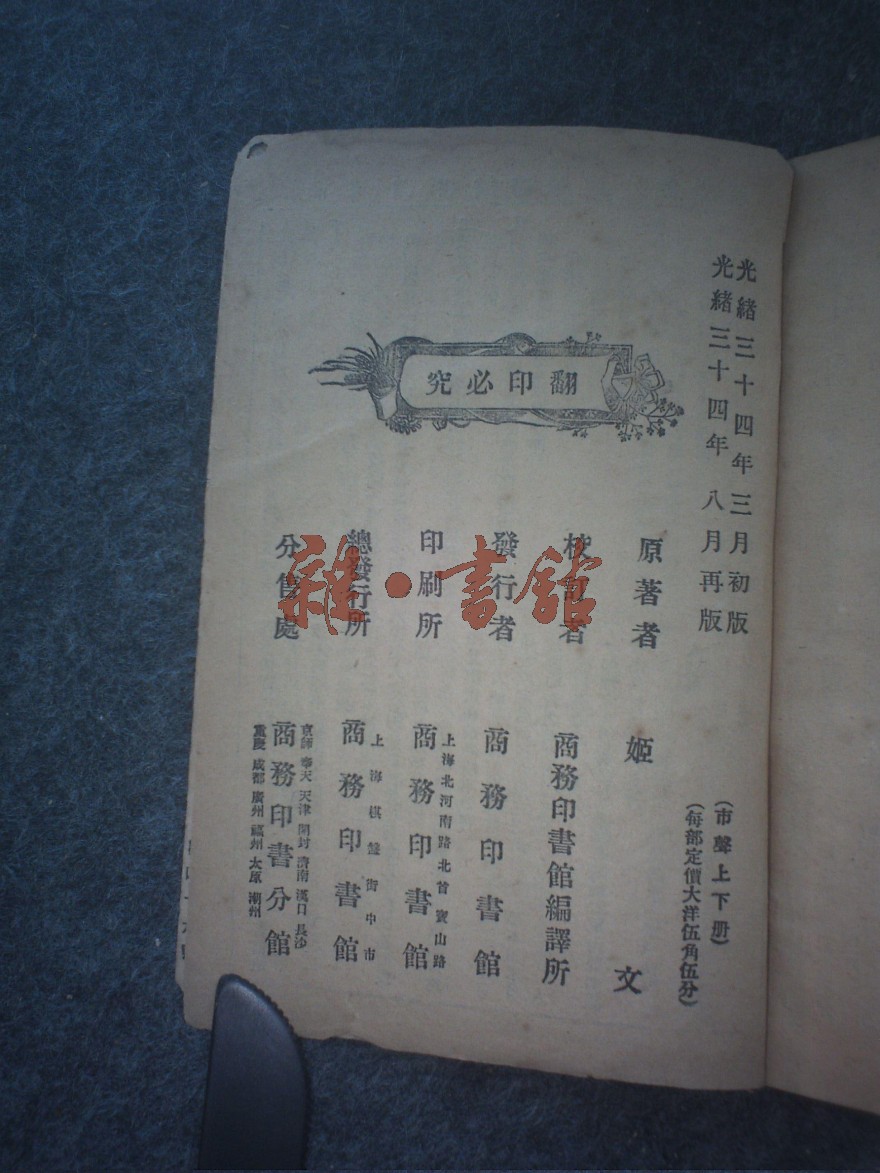 光緒三十四年三月初版
光緒三十四年八月再版
(市聲上下册)
(每部定價大洋伍角伍分)
翻印必究
原著者 姬文
校訂者 商務印書館編譯所
發行者 商務印書館
印刷所 上海北河南路北首寶山路 商務印書館
總發行所 上海棋盤街中市 商務印書館
分售處 京師 奉天 天津 開封 濟南 漢口 長沙 商務印書分館 重慶 成都 廣州 福州 太原 潮州
雜·書館